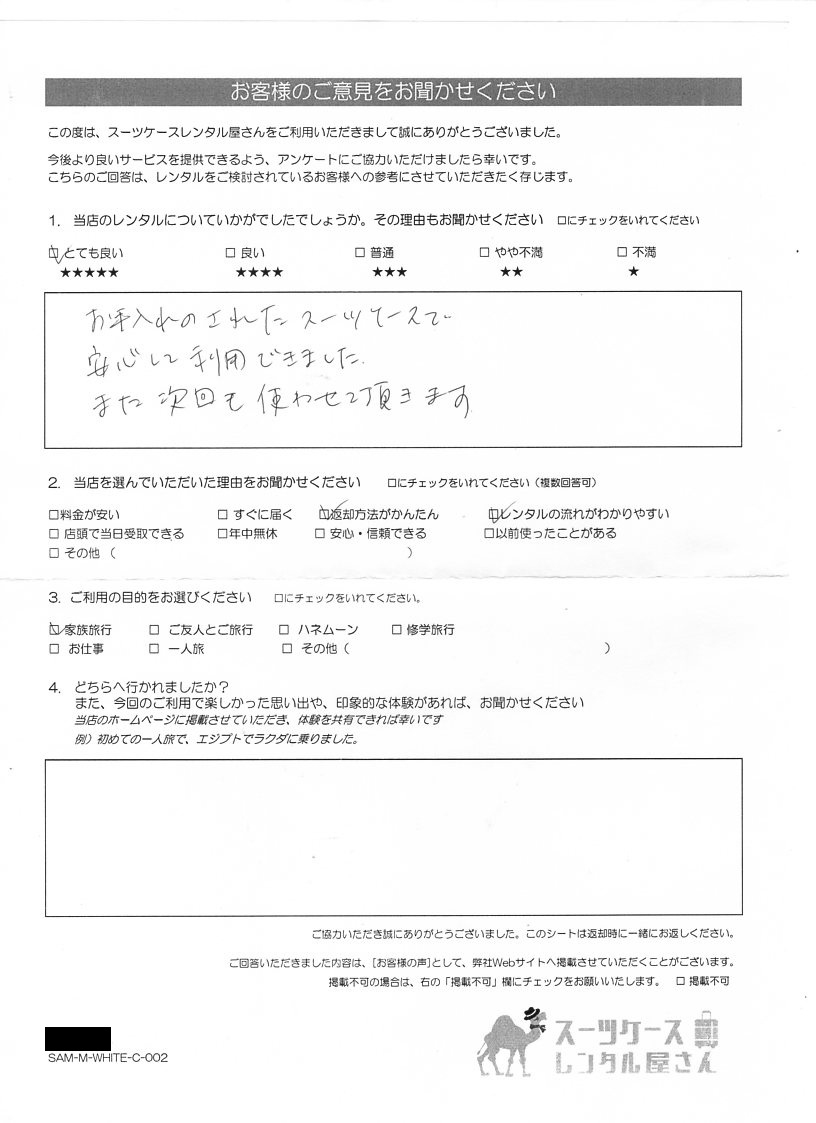 お客様のご意見をお聞かせください
この度は、スーツケースレンタル屋さんをご利用いただきまして誠にありがとうございました。
今後より良いサービスを提供できるよう、アンケートにご協力いただけましたら幸いです。
こちらのご回答は、レンタルをご検討されているお客様への参考にさせていただきたく存じます。
1. 当店のレンタルについていかがでしたでしょうか。その理由もお聞かせください □にチェックをいれてください
☑とても良い □ 良い □ 普通 □ やや不満 □ 不満
★★★★★ ★★★★ ★★★ ★★ ★
お手入れのされたスーツケースで
安心して利用できました.
また次回も使わせて頂きます
2. 当店を選んでいただいた理由をお聞かせください □にチェックをいれてください（複数回答可）
□料金が安い □ すぐに届く ☑返却方法がかんたん ☑レンタルの流れがわかりやすい
□ 店頭で当日受取できる □年中無休 □ 安心・信頼できる □以前使ったことがある
□ その他（ ）
3. ご利用の目的をお選びください □にチェックをいれてください。
☑家族旅行 □ ご友人とご旅行 □ ハネムーン □ 修学旅行
□ お仕事 □ 一人旅 □ その他（ ）
4. どちらへ行かれましたか？
また、今回のご利用で楽しかった思い出や、印象的な体験があれば、お聞かせください
当店のホームページに掲載させていただき、体験を共有できれば幸いです
例）初めての一人旅で、エジプトでラクダに乗りました。
ご協力いただき誠にありがとうございました。このシートは返却時に一緒にお返しください。
ご回答いただきました内容は、[お客様の声]として、弊社Webサイトへ掲載させていただくことがございます。
掲載不可の場合は、右の「掲載不可」欄にチェックをお願いいたします。 □ 掲載不可
SAM-M-WHITE-C-002
スーツケース
レンタル屋さん